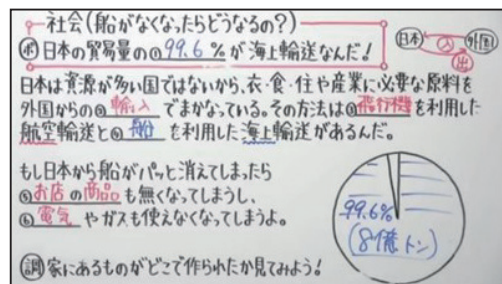 社会(船がなくなったらどうなるの?)
ポ 日本の貿易量の①99.6%が海上輸送なんだ!
日本 入 外国
出
日本は資源が多い国ではないから、衣・食・住や産業に必要な原料を
外国からの②輸入でまかなっている。その方法は③飛行機を利用した
航空輸送と④船を利用した海上輸送があるんだ。
もし日本から船がパッと消えてしまったら
⑤お店の商品も無くなってしまうし、
⑥電気やガスも使えなくなってしまうよ。
99.6%
(8億トン)
調 家にあるものがどこで作られたか見てみよう!